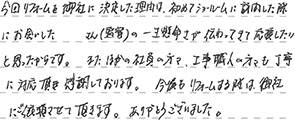 今回リフォームを御社に決定した理由は、初めてショールームに訪問した際
にお会いした　　さん(営業)の一生懸命さが伝わってきて応援したい
と思ったからです。また、ほかの社員の方々、工事職人の方々も丁寧
に対応頂き感謝しております。今後もリフォームする際は御社
にご依頼させて頂きます。ありがとうございました。